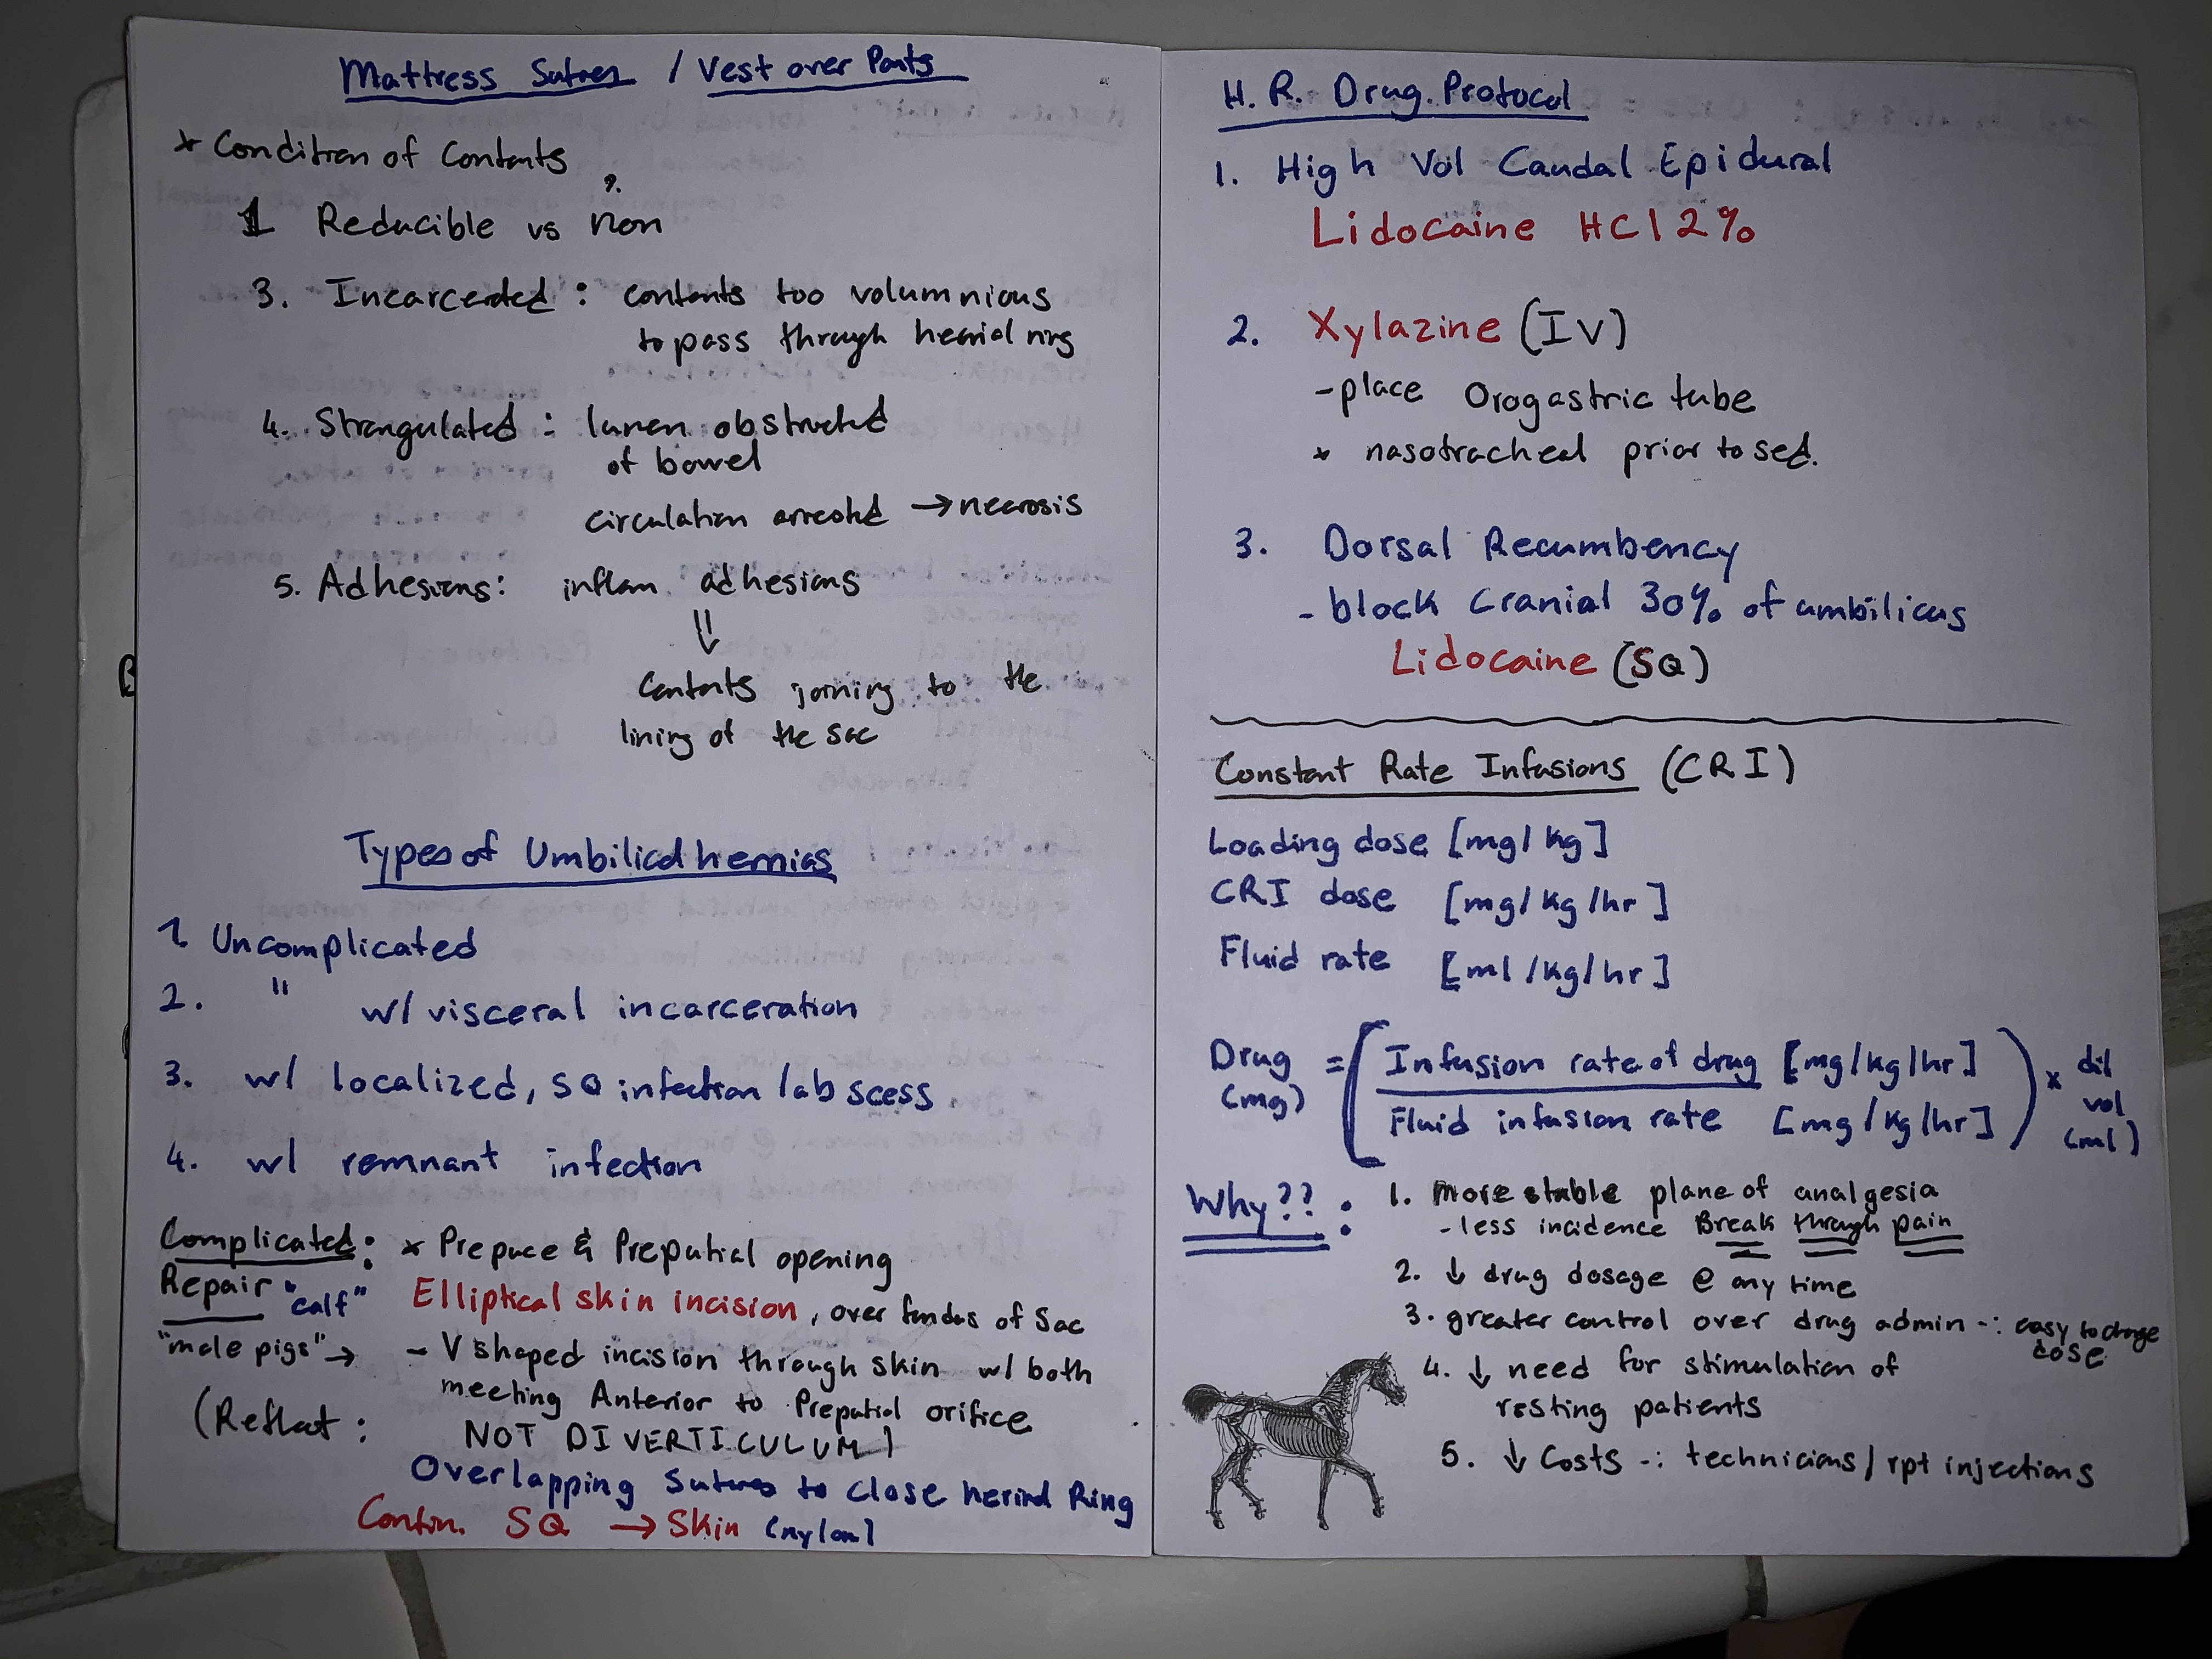 Mattress Sutures / Vest over Pants
* Condition of Contents
1 Reducible vs non
2.
3. Incarcerated : contents too volumnious
to pass through hernial ring
4. Strangulated : lumen obstructed
of bowel
circulation arrested → necrosis
5. Adhesions: inflam adhesions
⇓
Contents joining to the
lining of the sac
Types of Umbilical hernias
1. Uncomplicated
2. " w/ visceral incarceration
3. w/ localized, SQ infection / abscess
4. w/ remnant infection
Complicated: * Prepuce & Preputial opening
Repair "calf" Elliptical skin incision, over fundus of Sac
"male pigs" → - V shaped incision through skin w/ both
meeting Anterior to Preputial orifice
(Reflect : NOT DIVERTICULUM)
Overlapping Sutures to close hernial Ring
Contin. SQ → Skin (nylon)
H. R. Drug Protocol
1. High Vol Caudal Epidural
Lidocaine HCl 2%
2. Xylazine (IV)
- place Orogastric tube
* nasotracheal prior to sed.
3. Dorsal Recumbency
- block Cranial 30% of umbilicus
Lidocaine (SQ)
Constant Rate Infusions (CRI)
Loading dose [mg/kg]
CRI dose [mg/kg/hr]
Fluid rate [ml/kg/hr]
Drug (mg) = ( Infusion rate of drug [mg/kg/hr] / Fluid infusion rate [mg/kg/hr] ) x dil vol (ml)
Why?? : 1. more stable plane of analgesia
- less incidence Break through pain
2. ↓ drug dosage @ any time
3. greater control over drug admin -: easy to change
dose
4. ↓ need for stimulation of
resting patients
5. ↓ Costs -: technicians / rpt injections